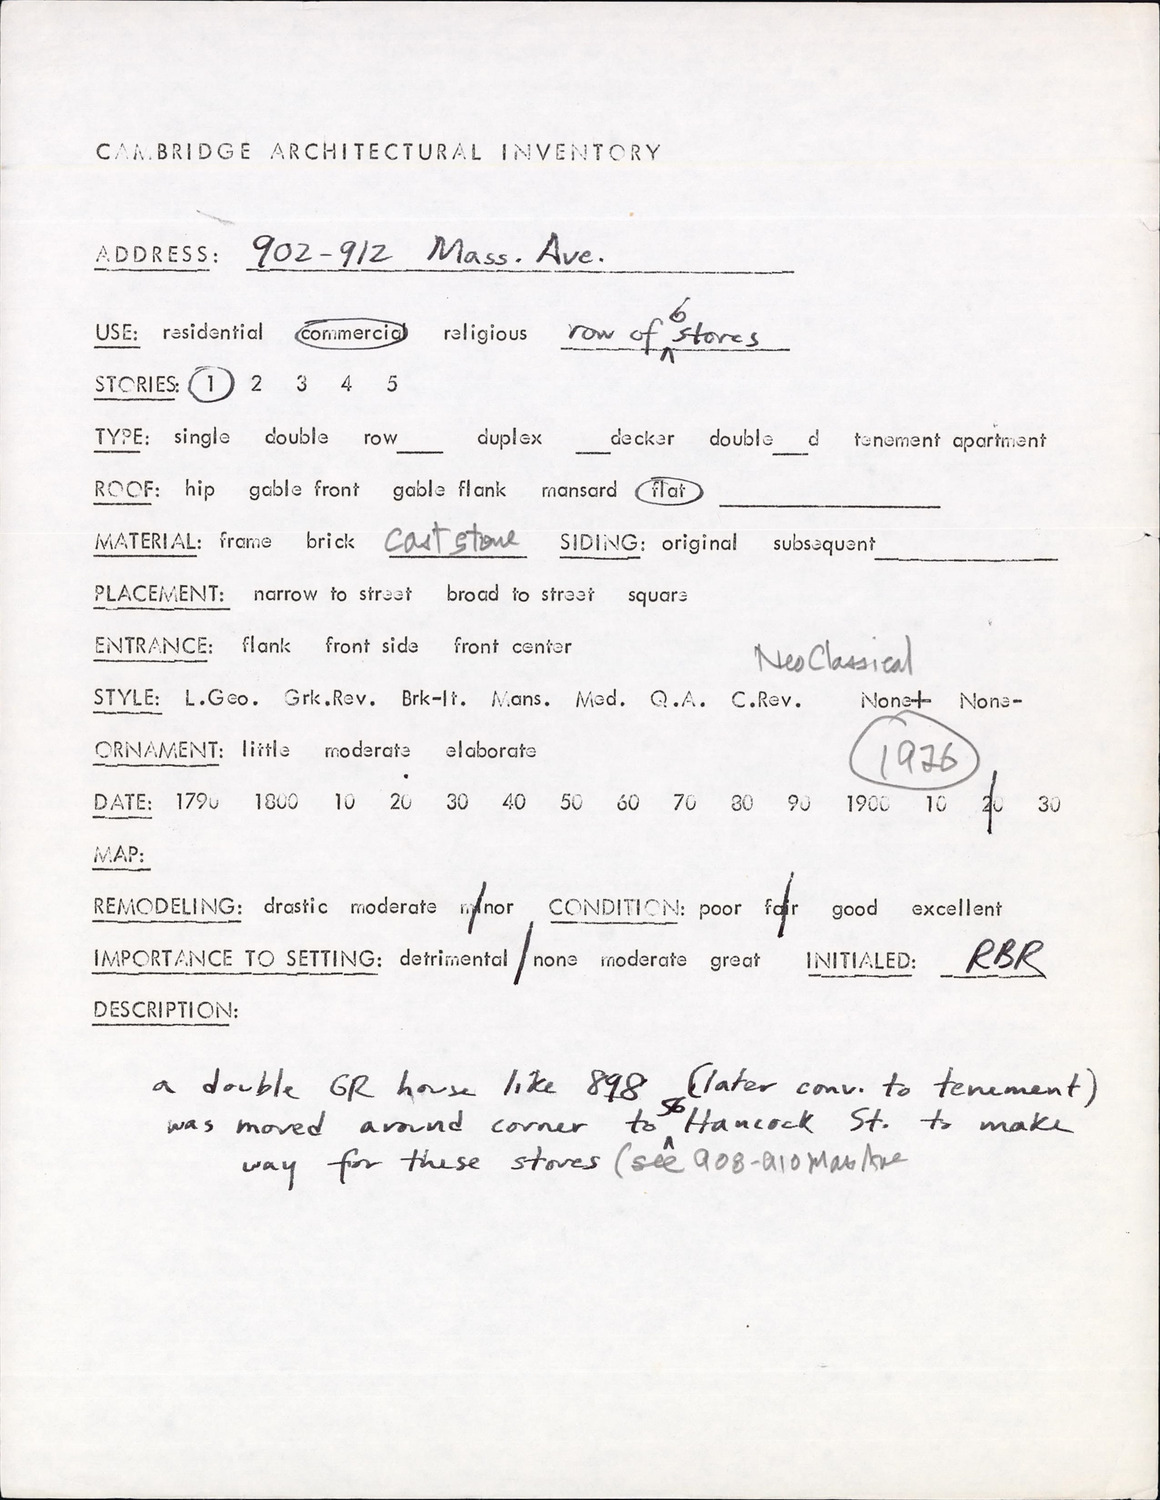 CAMBRIDGE ARCHITECTURAL INVENTORY
ADDRESS: 902-912 Mass. Ave.
USE: residential commercial religious row of 6 stores
STORIES: 1 2 3 4 5
TYPE: single double row___ duplex ___decker double___d tenement apartment
ROOF: hip gable front gable flank mansard flat
MATERIAL: frame brick Cast stone SIDING: original subsequent
PLACEMENT: narrow to street broad to street square
ENTRANCE: flank front side front center
NeoClassical
STYLE: L.Geo. Grk.Rev. Brk-It. Mans. Med. Q.A. C.Rev. None+ None-
ORNAMENT: little moderate elaborate 1926
DATE: 1790 1800 10 20 30 40 50 60 70 80 90 1900 10 20 30
MAP:
REMODELING: drastic moderate minor CONDITION: poor fair good excellent
IMPORTANCE TO SETTING: detrimental none moderate great INITIALED: RBR
DESCRIPTION:
a double GR house like 898 (later conv. to tenement)
was moved around corner to 56 Hancock St. to make
way for these stores (see 908-910 Mass Ave